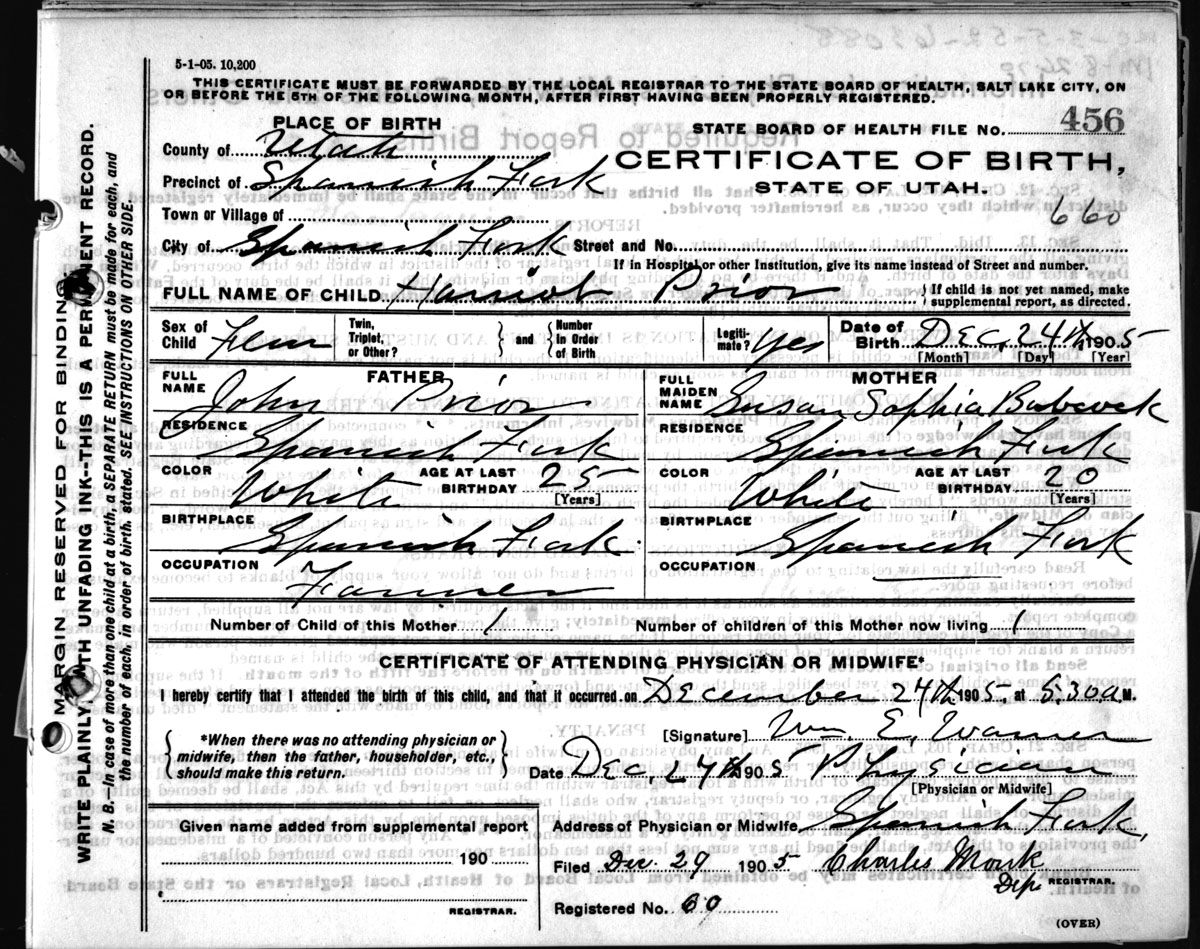 5-1-05. 10,200
THIS CERTIFICATE MUST BE FORWARDED BY THE LOCAL REGISTRAR TO THE STATE BOARD OF HEALTH, SALT LAKE CITY, ON
OR BEFORE THE 5TH OF THE FOLLOWING MONTH, AFTER FIRST HAVING BEEN PROPERLY REGISTERED.
PLACE OF BIRTH
STATE BOARD OF HEALTH FILE NO. 456
County of Utah
CERTIFICATE OF BIRTH,
Precinct of Spanish Fork
STATE OF UTAH.
660
Town or Village of
City of Spanish Fork Street and No.
If in Hospital or other Institution, give its name instead of Street and number.
FULL NAME OF CHILD Harriet Prior { If child is not yet named, make supplemental report, as directed.
Sex of Child Fem Twin, Triplet, or Other? { and } Number In Order of Birth Legiti-mate? Yes Date of Birth Dec. 24th 1905
[Month] [Day] [Year]
FATHER
FULL NAME John Prior
RESIDENCE Spanish Fork
COLOR White AGE AT LAST BIRTHDAY 25 [Years]
BIRTHPLACE Spanish Fork
OCCUPATION Farmer
MOTHER
FULL MAIDEN NAME Susan Sophia Babcock
RESIDENCE Spanish Fork
COLOR White AGE AT LAST BIRTHDAY 20 [Years]
BIRTHPLACE Spanish Fork
OCCUPATION
Number of Child of this Mother 1 Number of children of this Mother now living 1
CERTIFICATE OF ATTENDING PHYSICIAN OR MIDWIFE*
I hereby certify that I attended the birth of this child, and that it occurred on December 24th 1905 at 5.30 a M.
*When there was no attending physician or
midwife, then the father, householder, etc.,
should make this return.
[Signature] Wm. E. Warner
Date Dec. 24th 1905 Physician
[Physician or Midwife]
Given name added from supplemental report
190
REGISTRAR.
Address of Physician or Midwife Spanish Fork,
Filed Dec. 29 1905 Charles Monk
Dep. REGISTRAR.
Registered No. 60
(OVER)
MARGIN RESERVED FOR BINDING
WRITE PLAINLY WITH UNFADING INK--THIS IS A PERMANENT RECORD.
N. B.--In case of more than one child at a birth, a SEPARATE RETURN must be made for each, and
the number of each, in order of birth, stated. SEE INSTRUCTIONS ON OTHER SIDE.